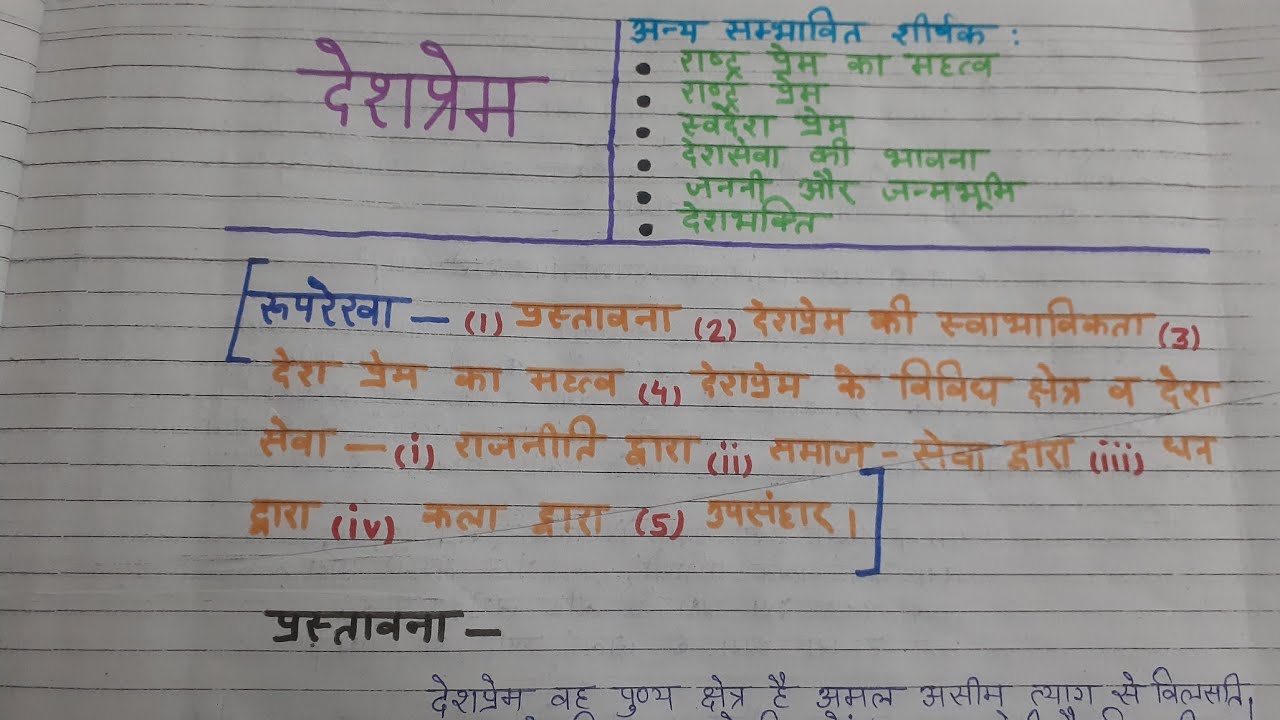 देशप्रेम
अन्य सम्भावित शीर्षक :
• राष्ट्र प्रेम का महत्व
• राष्ट्र प्रेम
• स्वदेश प्रेम
• देशसेवा की भावना
• जननी और जन्मभूमि
• देशभक्ति
[रूपरेखा — (1) प्रस्तावना (2) देशप्रेम की स्वाभाविकता (3)
देश प्रेम का महत्व (4) देशप्रेम के विविध क्षेत्र व देश
सेवा — (i) राजनीति द्वारा (ii) समाज - सेवा द्वारा (iii) धन
द्वारा (iv) कला द्वारा (5) उपसंहार।]
प्रस्तावना —
देशप्रेम वह पुण्य क्षेत्र है अमल असीम त्याग से विलसति,